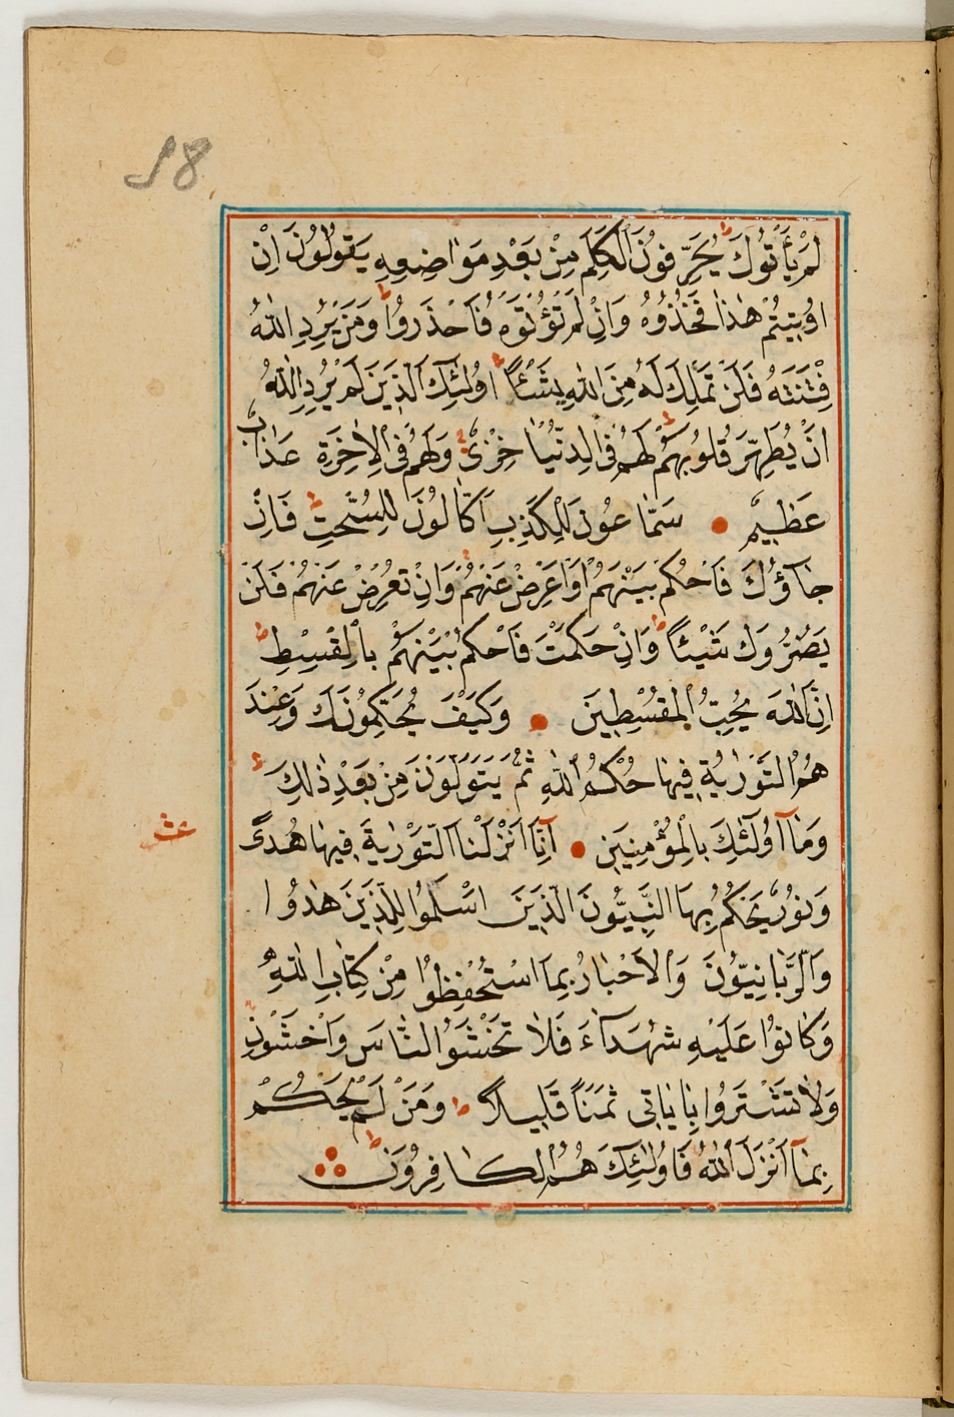 98
لَمْ يَأْتُوكَ ط يُحَرِّفُونَ الْكَلِمَ مِنْ بَعْدِ مَوَاضِعِهِ يَقُولُونَ اِنْ
اُوتِيتُمْ هٰذَا فَخُذُوهُ وَاِنْ لَمْ تُؤْتَوْهُ فَاحْذَرُوا ط وَمَنْ يُرِدِ اللّٰهُ
فِتْنَتَهُ فَلَنْ تَمْلِكَ لَهُ مِنَ اللّٰهِ شَيْئًا ط اُولٰئِكَ الَّذِينَ لَمْ يُرِدِ اللّٰهُ
اَنْ يُطَهِّرَ قُلُوبَهُمْ ط لَهُمْ فِى الدُّنْيَا خِزْىٌ وَلَهُمْ فِى الْاٰخِرَةِ عَذَابٌ
عَظِيمٌ سَمَّاعُونَ لِلْكَذِبِ اَكَّالُونَ لِلسُّحْتِ ط فَاِنْ
جَآؤُكَ فَاحْكُمْ بَيْنَهُمْ اَوْ اَعْرِضْ عَنْهُمْ وَاِنْ تُعْرِضْ عَنْهُمْ فَلَنْ
يَضُرُّوكَ شَيْئًا ط وَاِنْ حَكَمْتَ فَاحْكُمْ بَيْنَهُمْ بِالْقِسْطِ ط
اِنَّ اللّٰهَ يُحِبُّ الْمُقْسِطِينَ وَكَيْفَ يُحَكِّمُونَكَ وَعِنْدَ
هُمُ التَّوْرٰيةُ فِيهَا حُكْمُ اللّٰهِ ثُمَّ يَتَوَلَّوْنَ مِنْ بَعْدِ ذٰلِكَ ط
وَمَآ اُولٰئِكَ بِالْمُؤْمِنِينَ اِنَّآ اَنْزَلْنَا التَّوْرٰيةَ فِيهَا هُدًى
وَنُورٌ يَحْكُمُ بِهَا النَّبِيُّونَ الَّذِينَ اَسْلَمُوا لِلَّذِينَ هَادُوا
وَالرَّبَّانِيُّونَ وَالْاَحْبَارُ بِمَا اسْتُحْفِظُوا مِنْ كِتَابِ اللّٰهِ
وَكَانُوا عَلَيْهِ شُهَدَآءَ فَلَا تَخْشَوُا النَّاسَ وَاخْشَوْنِ
وَلَا تَشْتَرُوا بِاٰيَاتِى ثَمَنًا قَلِيلًا ط وَمَنْ لَمْ يَحْكُمْ
بِمَآ اَنْزَلَ اللّٰهُ فَاُولٰئِكَ هُمُ الْكَافِرُونَ ط